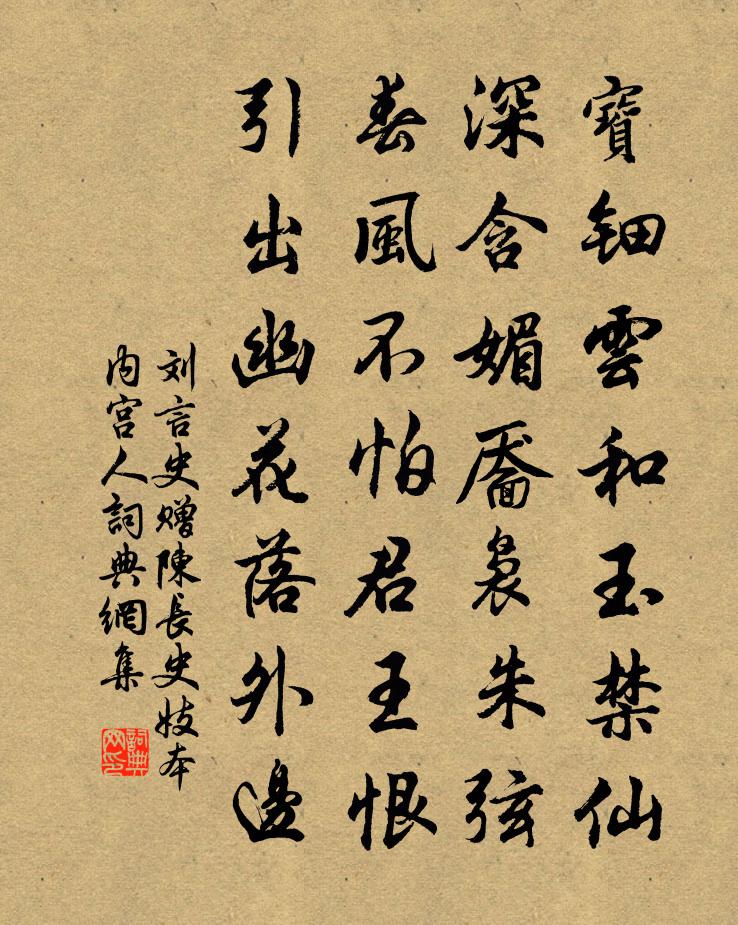 寶鈿雲和玉禁仙
深含媚靨裊朱弦
春風不怕君王恨
引出幽花落外邊
刘言史赠陳長史妓本
内宫人詞典網集
詞典
网